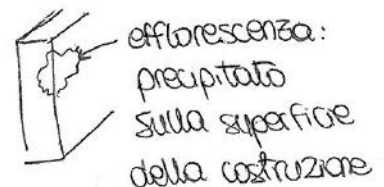 efflorescenza:
precipitato
sulla superficie
della costruzione